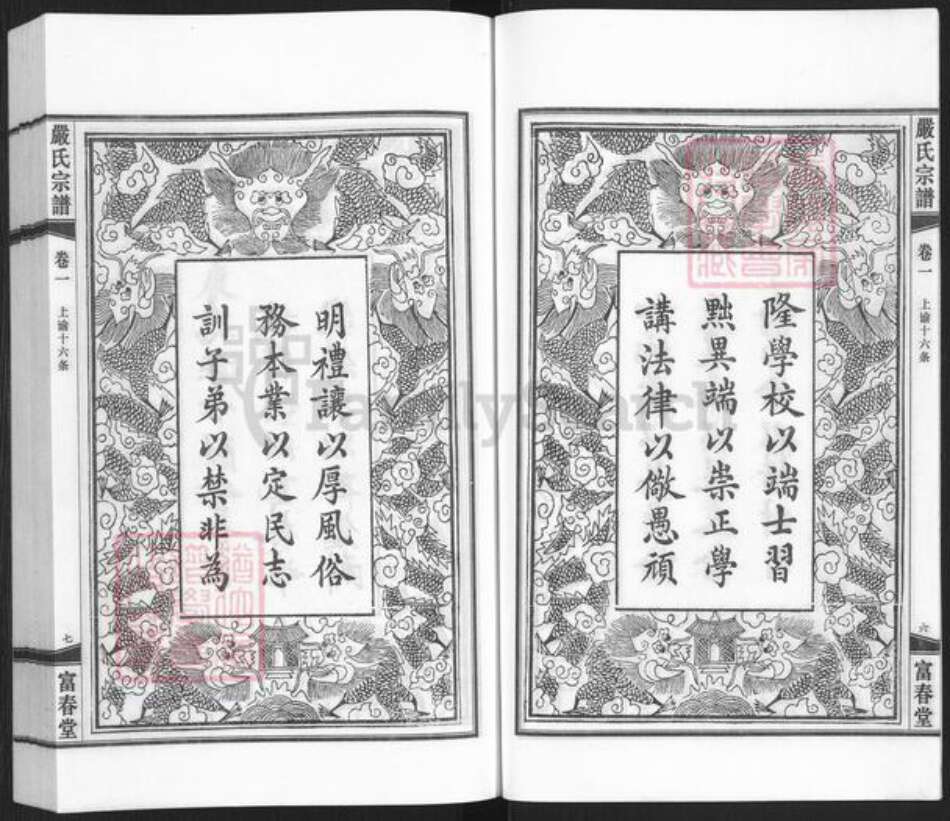 嚴氏宗譜
卷一
上諭十六条
六
富春堂
隆學校以端士習
黜異端以崇正學
講法律以儆愚頑
明禮讓以厚風俗
務本業以定民志
訓子弟以禁非為
嚴氏宗譜
卷一
上諭十六条
七
富春堂
FamilySearch